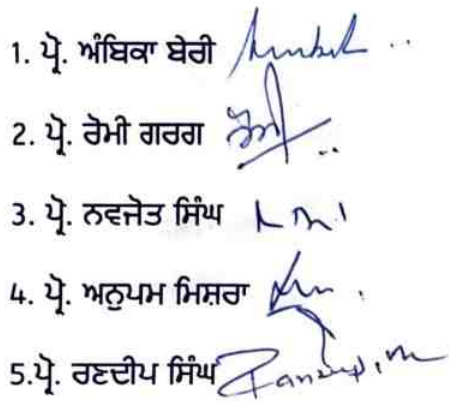 1. ਪ੍ਰੋ. ਅੰਬਿਕਾ ਬੇਰੀ
2. ਪ੍ਰੋ. ਰੋਮੀ ਗਰਗ
3. ਪ੍ਰੋ. ਨਵਜੋਤ ਸਿੰਘ
4. ਪ੍ਰੋ. ਅਨੁਪਮ ਮਿਸ਼ਰਾ
5.ਪ੍ਰੋ. ਰਣਦੀਪ ਸਿੰਘ